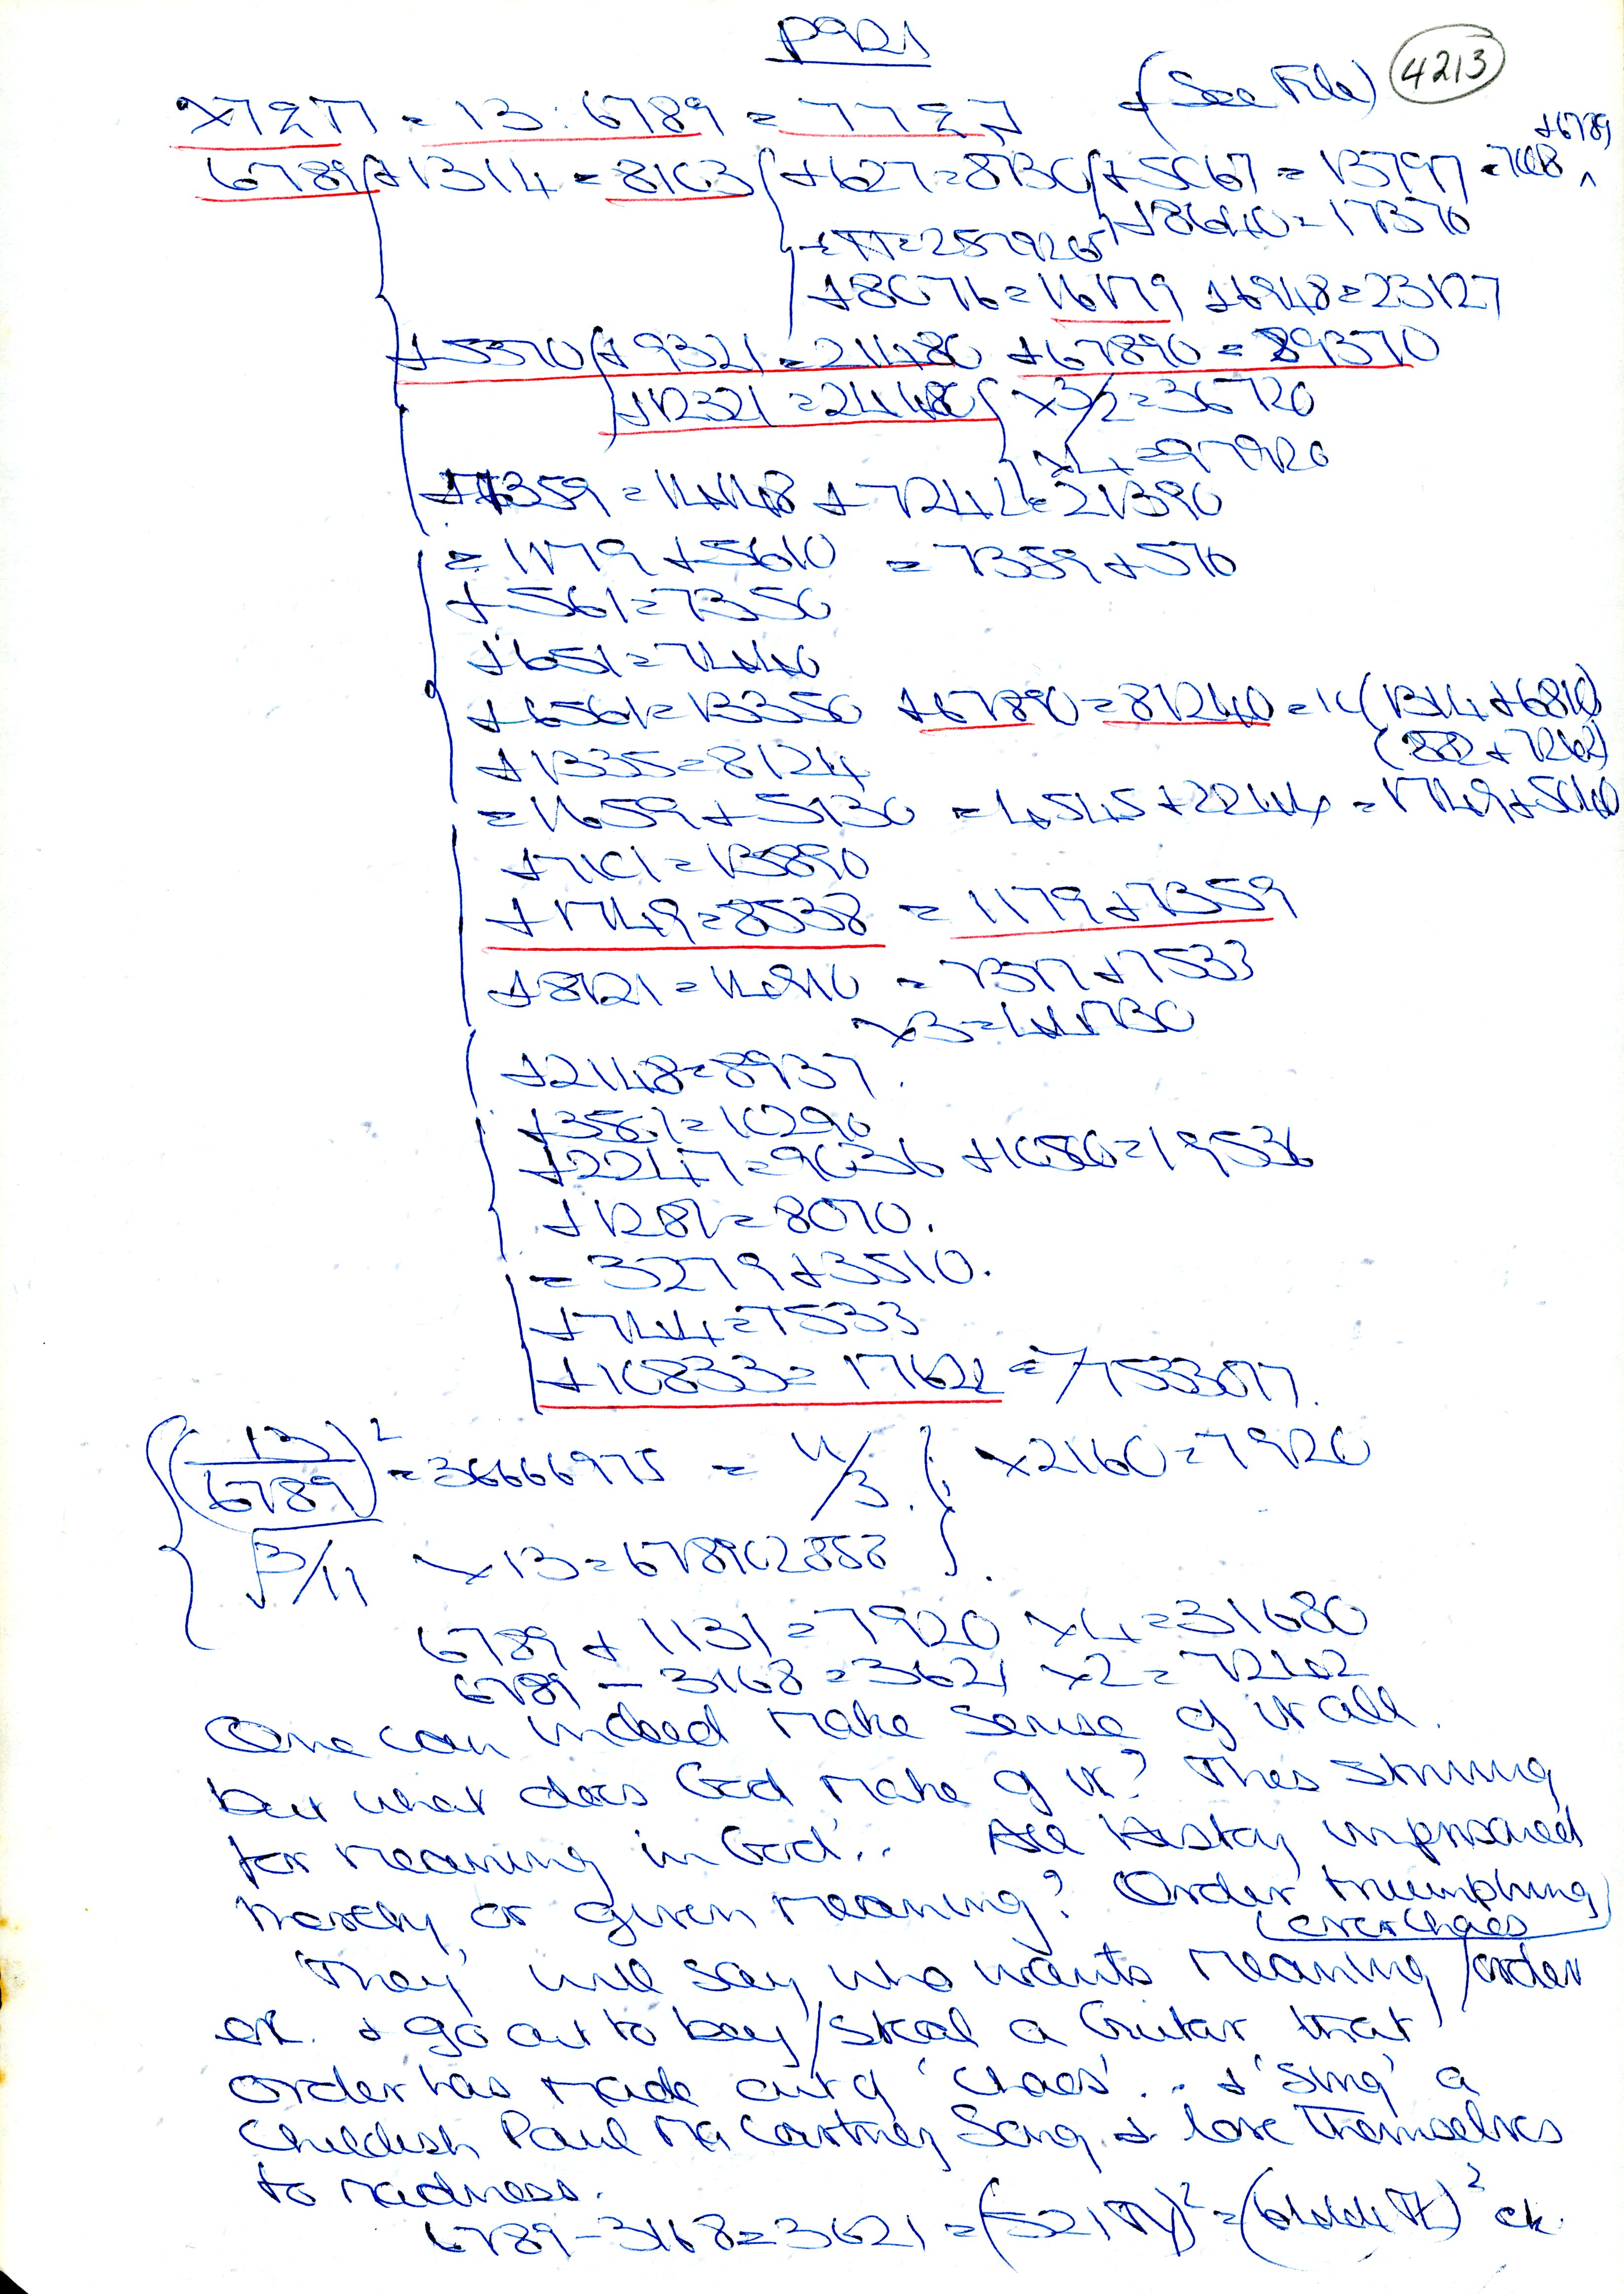 P921
(See File) 4213
= 13 : 6789 =
6789 + 1314 = 8103 + 627 = 8730 + 5067 = 13797
+ 6789
+ 8640 = 17370
+ 8076 = 16179 + 6948 = 23127
+ 5370 + 9321 = 21480 + 67890 = 89370
+ 12321 = 24480 x 3/2 = 36720
x 4 = 97920
+ 7359 = 14148 + 7242 = 21390
= 1179 + 5610 = 7359 + 570
+ 561 = 7350
+ 651 = 7440
+ 6561 = 13350 + 67890 = 81240 = 10 (1314 + 6810)
(862 + 7262)
+ 1335 = 8124
= 1659 + 5130 = 4545 + 2244 = 1749 + 5040
+ 7101 = 13890
+ 1749 = 8538 = 1179 + 7359
+ 8121 = 14910 = 7377 + 7533
x 3 = 44730
+ 2148 = 8937
+ 3501 = 10290
+ 2247 = 9036 + 10500 = 19536
+ 1281 = 8070.
= 3279 + 3510.
+ 744 = 7533
+ 10833 = 17622 =
(13/6789)² = 36666975 = 11/3 x 2160 = 7920
√3/11 x 13 = 678902858
6789 + 1131 = 7920 x 4 = 31680
6789 - 3168 = 3621 x 2 = 7242
One can indeed make sense of it all.
but what does God make of it? This striving
for meaning in God'.. All history imprisoned
merely or given meaning? Order triumphing
over chaos
'They' will say who wants meaning/order
etc. & go out to buy/steal a Guitar that
order has made out of 'Chaos'.. & 'sing' a
Childish Paul McCartney Song & lose themselves
to madness.
6789 - 3168 = 3621 = etc.